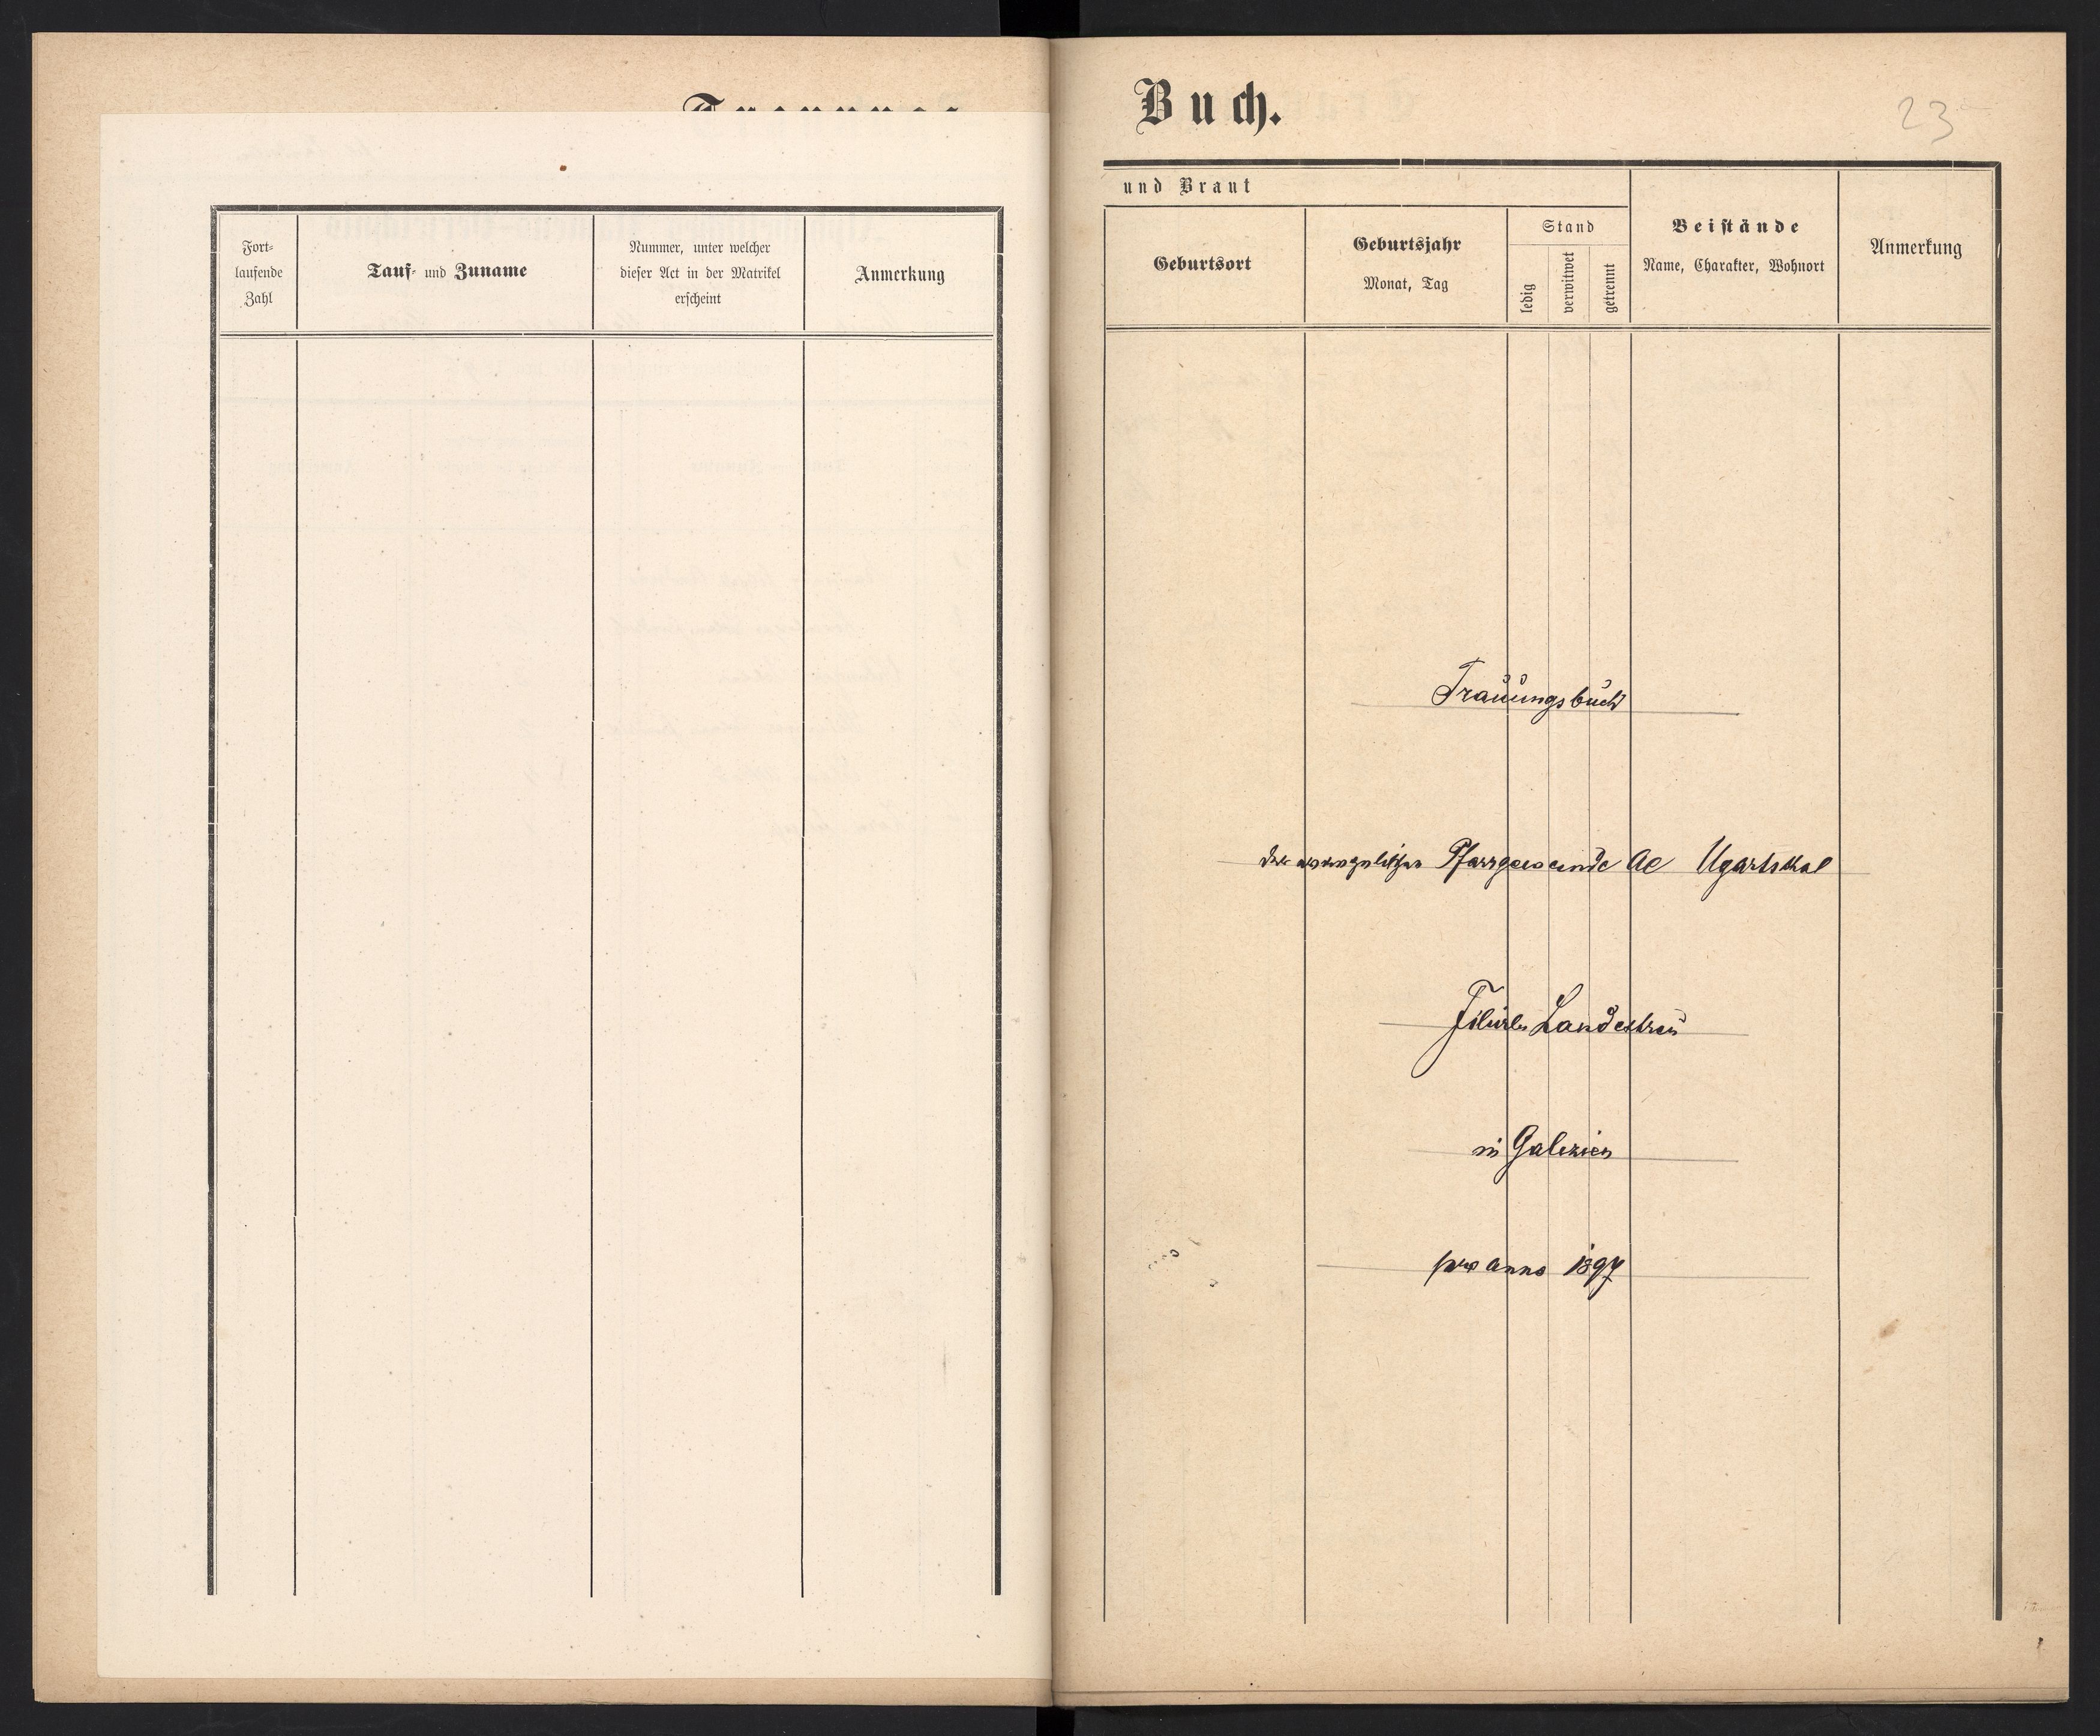 Fort-
laufende
Zahl
Tauf- und Zuname
Nummer, unter welcher
dieser Act in der Matrikel
erscheint
Anmerkung
Buch.
23
und Braut
Geburtsort
Geburtsjahr
Monat, Tag
Stand
ledig
verwitwet
getrennt
Beistände
Name, Charakter, Wohnort
Anmerkung
Trauungsbuch
der evangelischen Pfarrgemeinde AC Ugartsthal
Filiale Landestreu
in Galizien
pro anno 1897